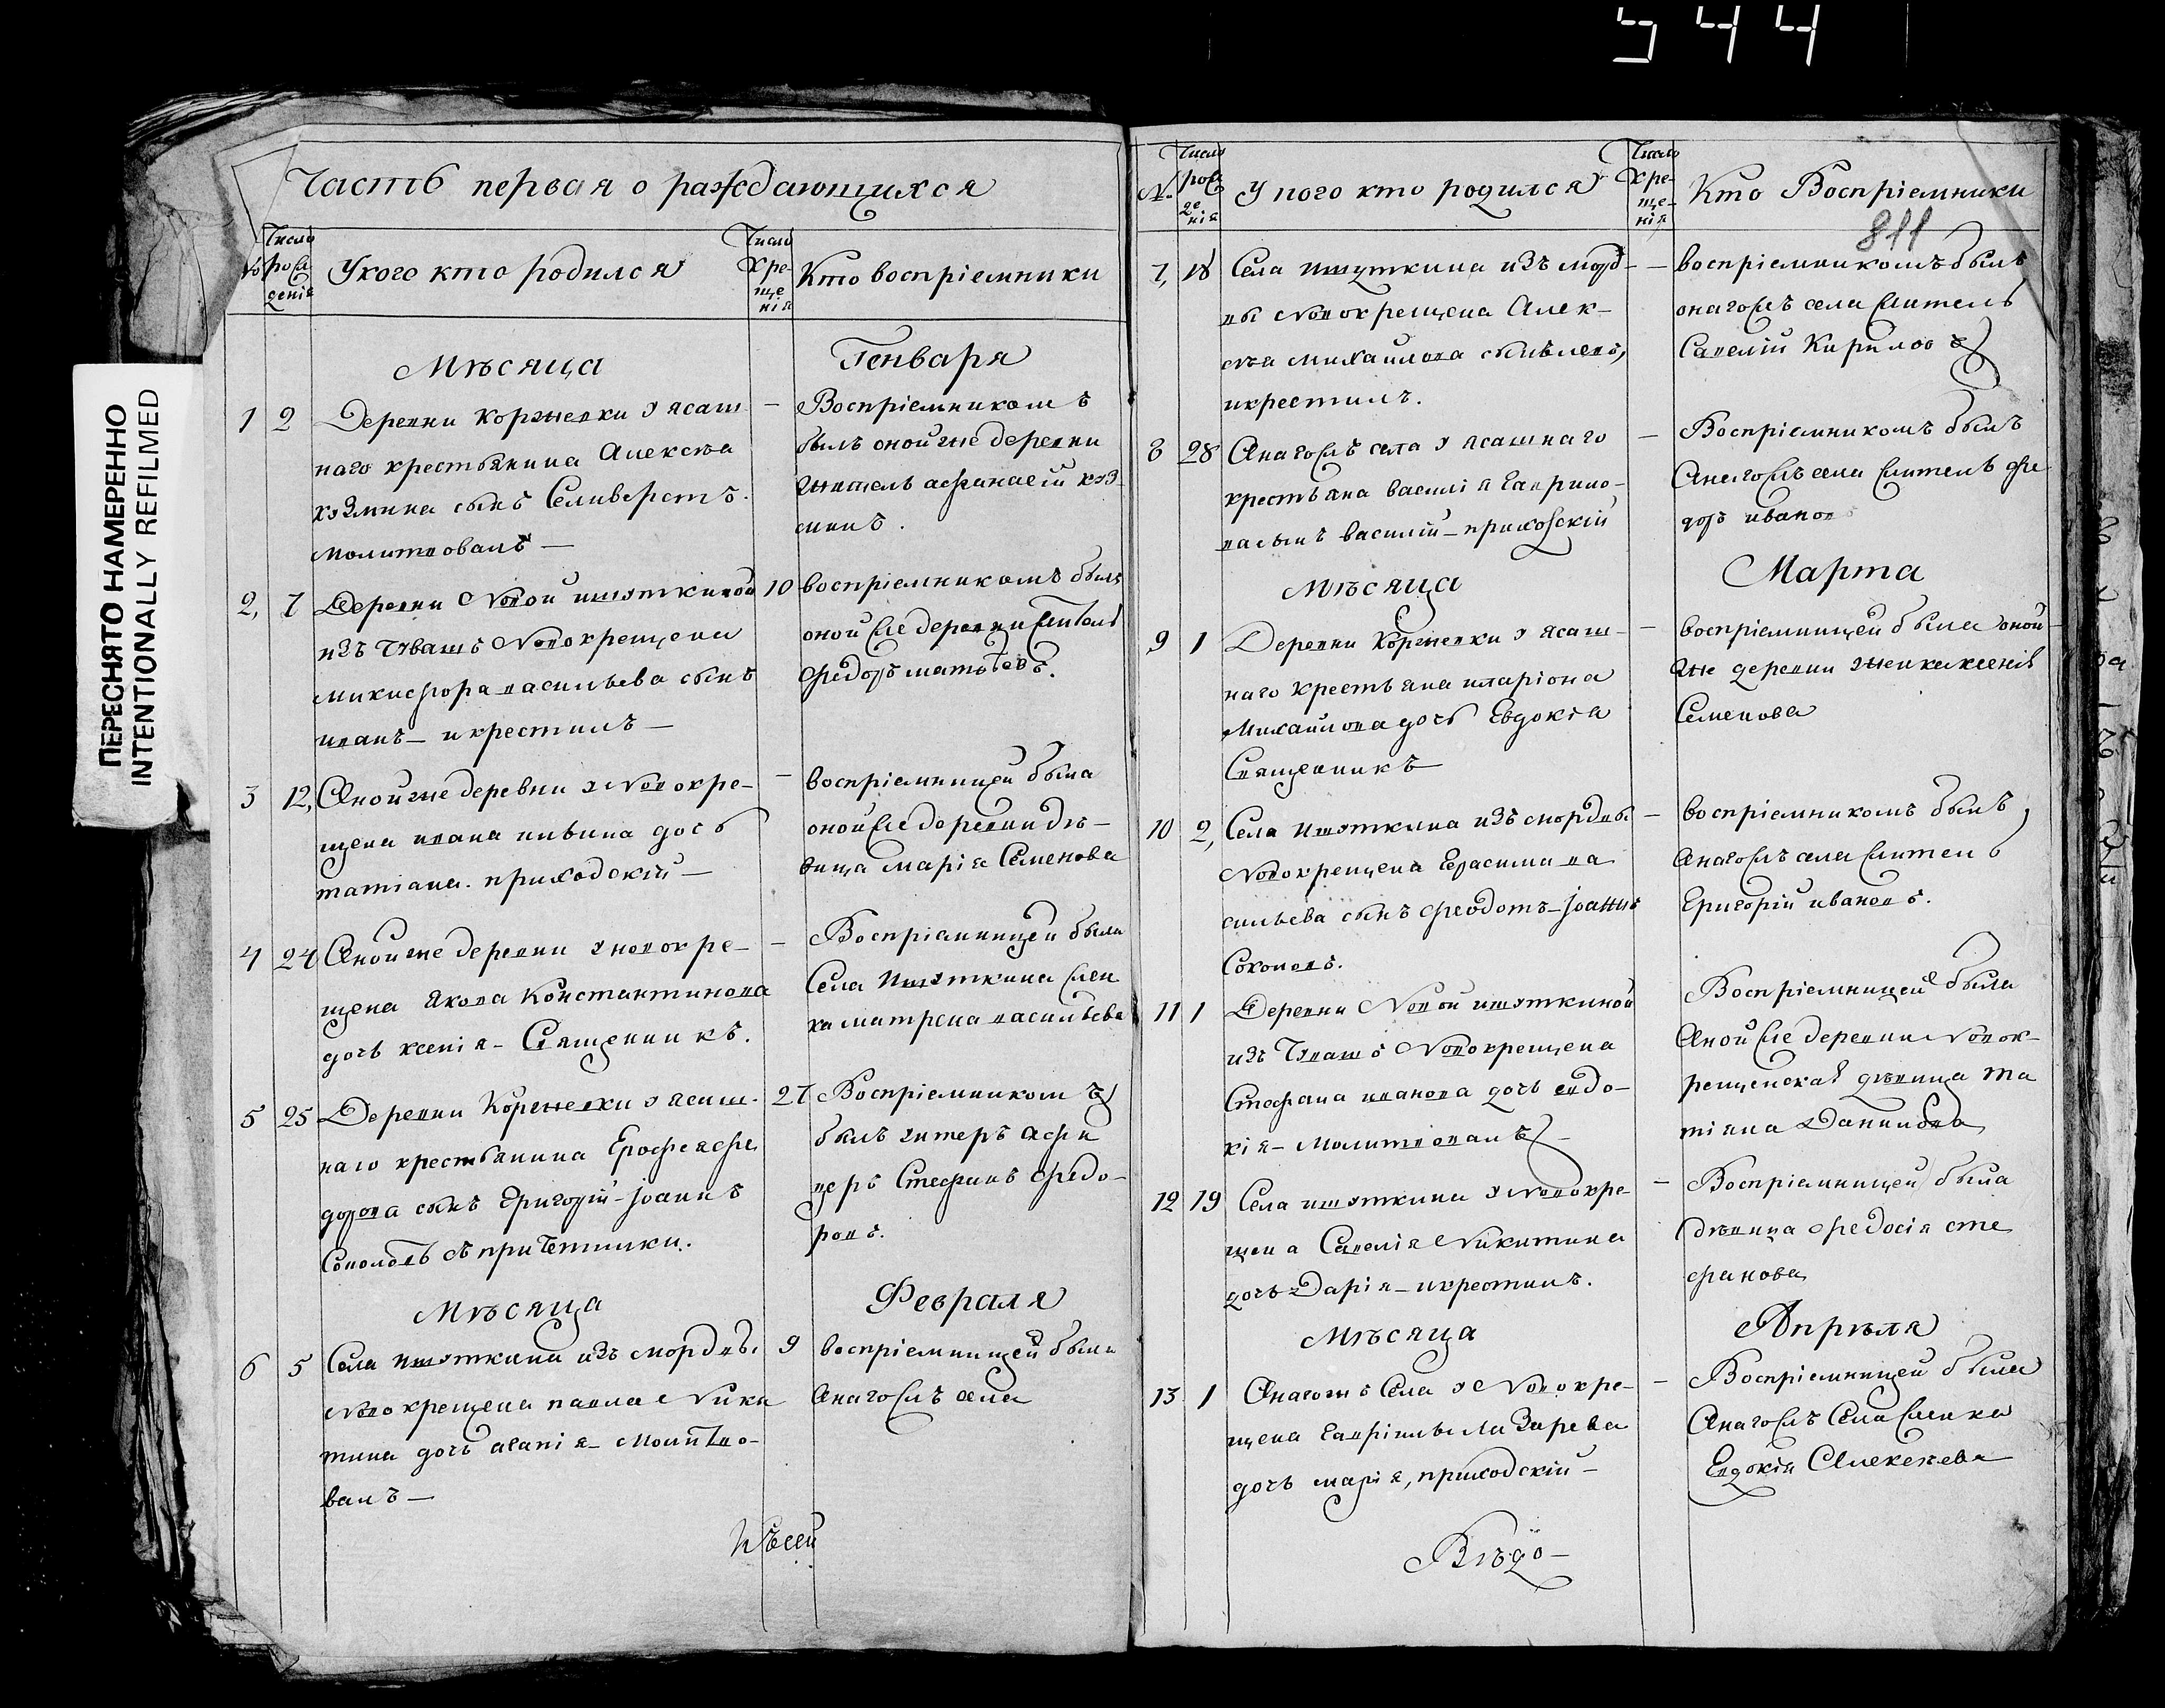 544
ПЕРЕСНЯТО НАМЕРЕННО
INTENTIONALLY REFILMED
Часть первая о раждающихся
№
Число рождения
У кого кто родился
Число крещения
Кто восприемники
Мѣсяца Генваря
1 2 Деревни Коржевки у ясаш-
наго крестьянина Алексѣа
козмина сынъ Селиверстъ.
молитвовалъ —
— Восприемникомъ
былъ оной же деревни
житель афанасей коз-
минъ.
2, 7 Деревни Новой ишуткиной
изъ Чувашъ Новокрещена
микифора васильева сынъ
иванъ — и крестилъ —
10 восприемникомъ былъ
оной же деревни житель
Федоръ матвѣевъ.
3 12, Аной же деревни у Новокре-
щена ивана дочь
татiана. приходскiй —
— восприемницей была
оной же деревни дѣ-
вица марiя Семенова
4 24 Аной же деревни у новокре-
щена Якова Константинова
дочь ксенiя — Священникъ.
— Восприемницей была
Села ишуткина жен
ка матрена васильева
5 25 Деревни Коржевки у ясаш-
наго крестьянина Ерофея фе
дорова сынъ Григорiй — Iоаннъ
Соколовъ съ причетники.
27 Восприемникомъ
былъ унтеръ афи
церъ Стефанъ Федо-
ровъ.
Мѣсяца Февраля
6 5 Села ишуткина изъ мордвы
Новокрещена павла Ники
тина дочь агапiя — Молитво-
валъ —
9 восприемницей была
Анагожъ села
№
Число рождения
У кого кто родился
Число крещения
Кто Восприемники
811
7, 18 Села ишуткина изъ морд-
вы Новокрещена Алек-
сѣа михаилова сынъ левъ,
и крестилъ.
— восприемникомъ былъ
онагожъ села житель
Савелiй Кириловъ
8 28 Анагожъ села у ясашнаго
крестьяна василiя Гаврило-
ва сынъ василiй — приходскiй
— Восприемникомъ былъ
Анагожъ села житель фе
доръ ивановъ
Мѣсяца Марта
9 1 Деревни Коржевки у ясаш-
наго крестьяна иларiона
Михаилова дочь Евдокiя
Священникъ —
— восприемницей была оной
же деревни женка ксенiя
Семенова
10 2, Села ишуткина изъ мордвы
Новокрещена Герасима ва
сильева сынъ Феодотъ — Iоаннъ
Соколовъ.
— восприемникомъ былъ
Анагожъ села житель
Григорiй ивановъ.
11 1 Деревни Новой ишуткиной
изъ Чувашъ Новокрещена
Стефана иванова дочь евдо-
кiя — Молитвовалъ —
Восприемницей была
Аной же деревни Новок-
рещенская дѣвица та
тiяна Данилова
12 19 Села ишуткина у Новокре-
щена Савелiя Никитина
дочь Дарiя — и крестилъ.
— Восприемницей была
дѣвица Федосiя сте
фанова
Мѣсяца Апрѣля
13 1 Анагожъ Села у Новокре-
щена Гаврiила Лазарева
дочь марiя, приходскiй —
— Восприемницей была
Анагожъ Села женка
Евдокiя Алексѣева
Къ сей
Вѣдо-